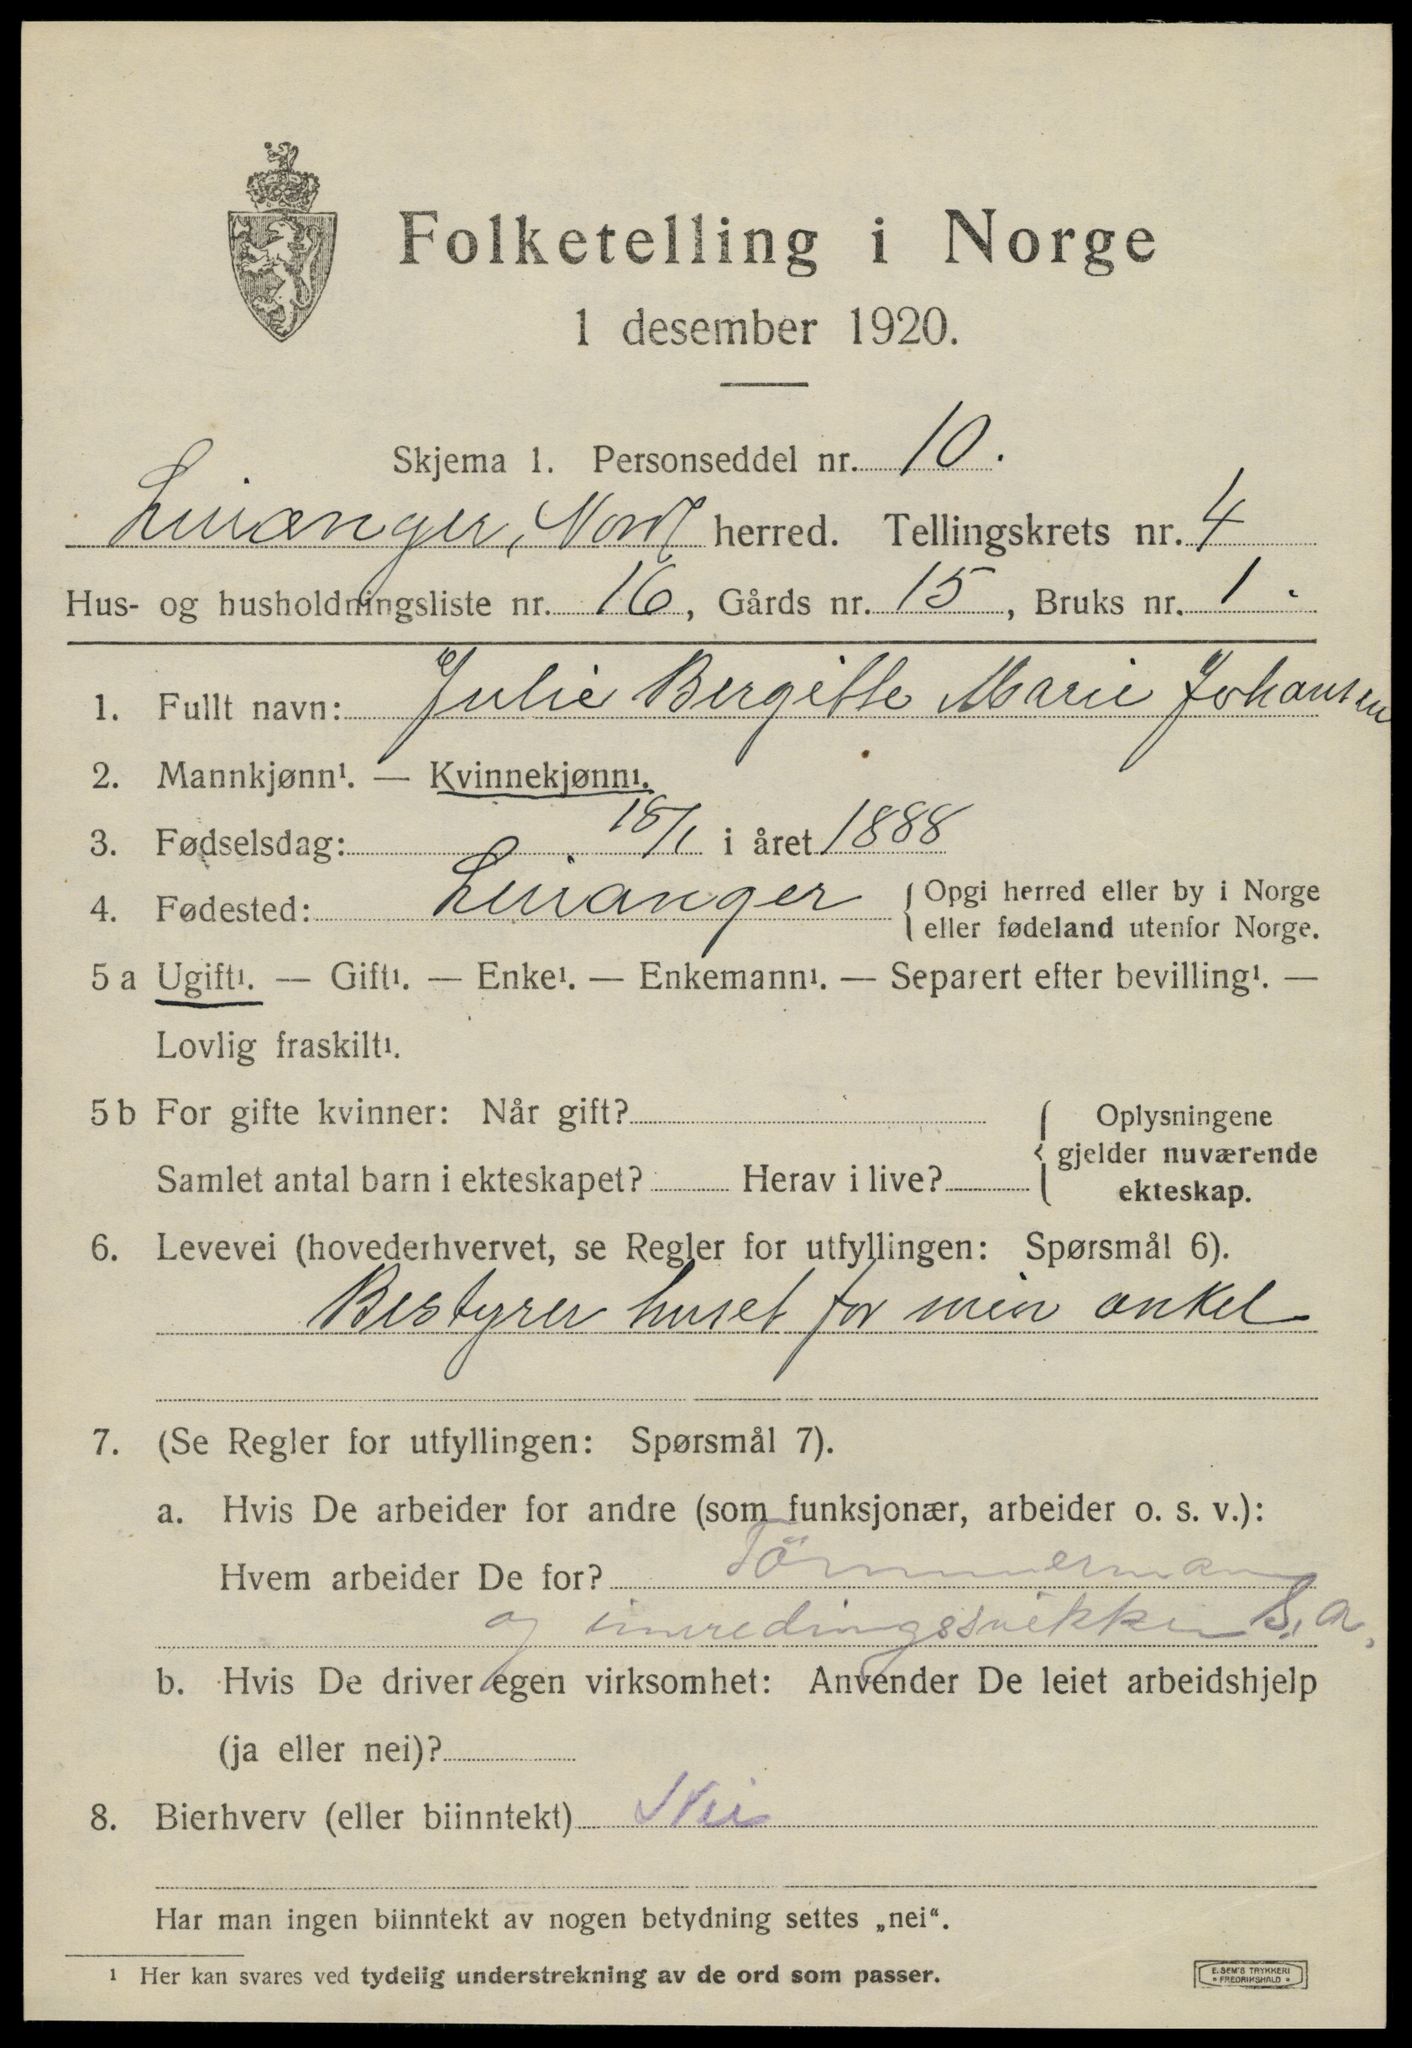 Folketelling i Norge
1 desember 1920.
Skjema 1. Personseddel nr. 10.
Leiranger, Nord herred. Tellingskrets nr. 4
Hus- og husholdningsliste nr. 16, Gårds nr. 15, Bruks nr. 1.
1. Fullt navn: Julie Bergitte Marie Johansen
2. Mannkjønn¹. — Kvinnekjønn¹.
3. Fødselsdag: 18/1 i året 1888
4. Fødested: Leiranger { Opgi herred eller by i Norge
eller fødeland utenfor Norge.
5 a Ugift¹. — Gift¹. — Enke¹. — Enkemann¹. — Separert efter bevilling¹. —
Lovlig fraskilt¹.
5 b For gifte kvinner: Når gift? { Oplysningene
gjelder nuværende
ekteskap.
Samlet antal barn i ekteskapet? Herav i live?
6. Levevei (hovederhvervet, se Regler for utfyllingen: Spørsmål 6).
Bestyrer huset for min onkel
7. (Se Regler for utfyllingen: Spørsmål 7).
a. Hvis De arbeider for andre (som funksjonær, arbeider o. s. v.):
Hvem arbeider De for? Tömmerman
og innredingssnekker S. A.
b. Hvis De driver egen virksomhet: Anvender De leiet arbeidshjelp
(ja eller nei)?
8. Bierhverv (eller biinntekt) Nei
Har man ingen biinntekt av nogen betydning settes „nei“.
¹ Her kan svares ved tydelig understrekning av de ord som passer.
E. SEM'S TRYKKERI
• FREDRIKSHALD •